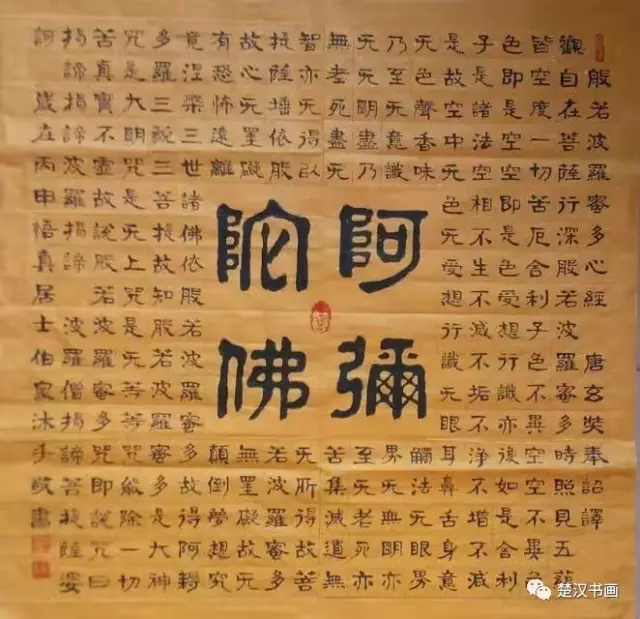 般若波羅密多心經 唐玄奘奉詔譯
觀自在菩薩行深般若波羅密多時照見五蘊
皆空度一切苦厄舍利子色不異空空不異色
色即是空空即是色受想行識亦復如是舍利
子是諸法空相不生不滅不垢不淨不增不減
是故空中无色无受想行識无眼耳鼻舌身意
无色聲香味觸法无眼界
乃至无意識界无无明亦
无无明盡乃至无老死亦
無老死盡无苦集滅道無
智亦无得以无所得故菩
提薩埵依般若波羅密多
故心无罣礙無罣礙故无
有恐怖遠離顛倒夢想究
竟涅槃三世諸佛依般若波羅密多故得阿耨
多羅三藐三菩提故知般若波羅密多是大神
咒是大明咒是无上咒是无等等咒能除一切
苦真實不虛故說般若波羅密多咒即說咒曰
揭諦揭諦波羅揭諦波羅僧揭諦菩提薩婆
訶 歲在丙申悟真居士伯家沐手敬書
阿彌
陀佛
楚汉书画